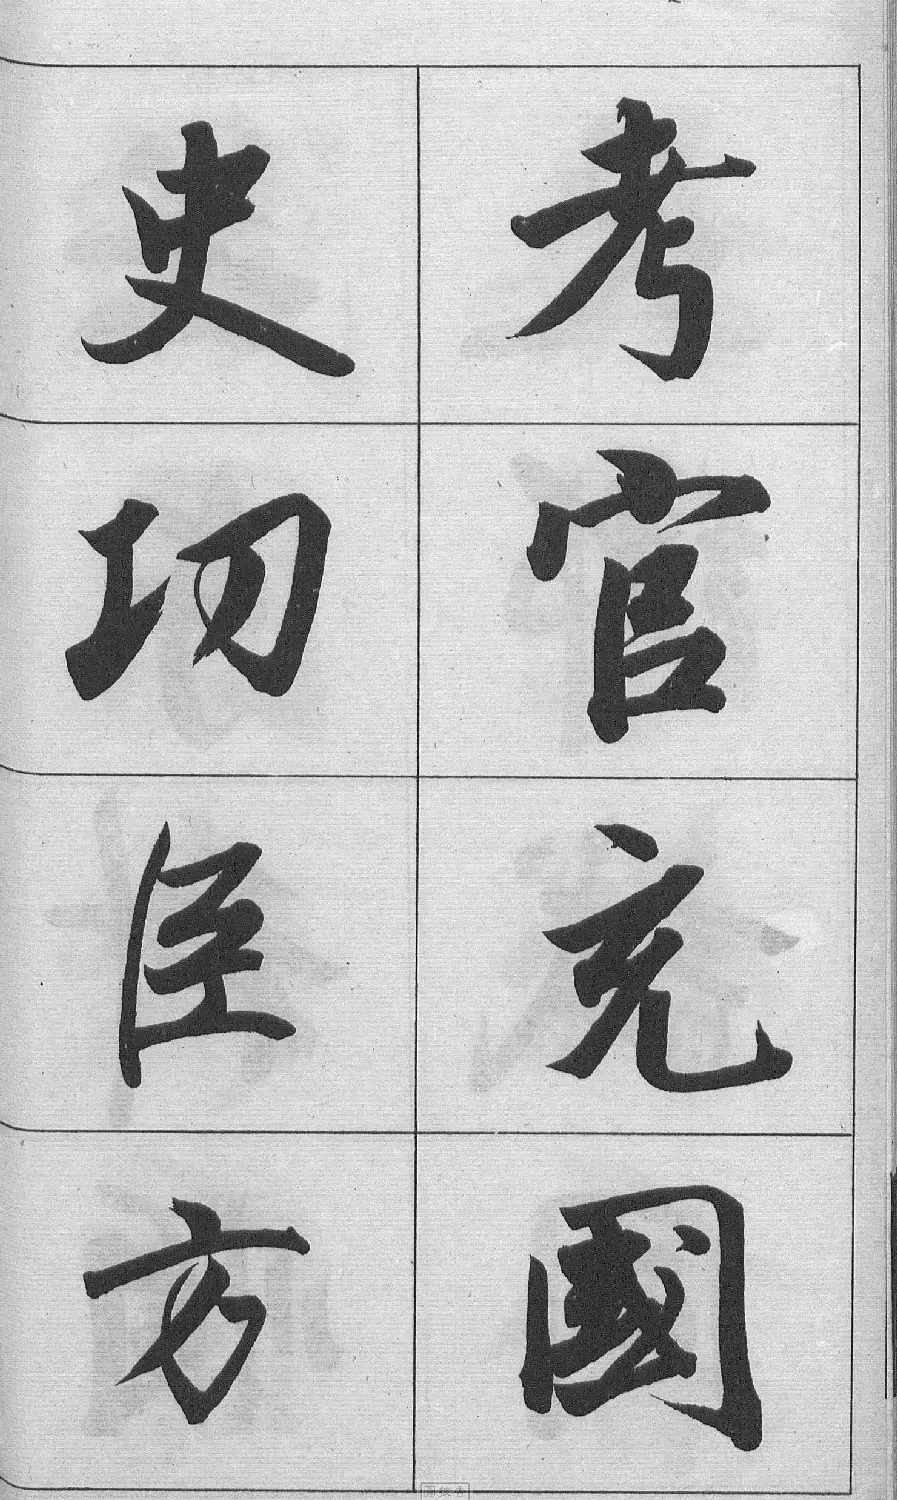 考官充國
史功臣方